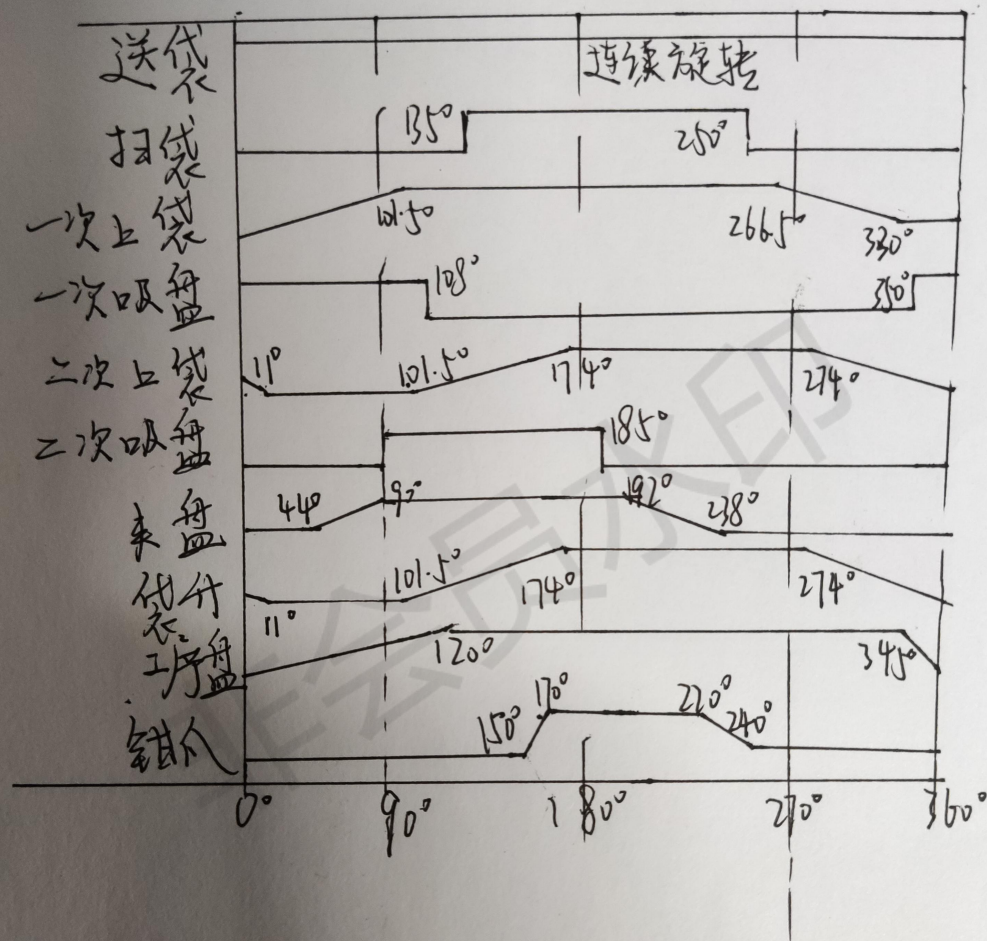 送袋 连续旋转
扫袋 135° 250°
一次上袋 101.5° 266.5° 330°
一次吸盘 108° 350°
二次上袋 11° 101.5° 174° 274°
二次吸盘 185°
夹盘 44° 90° 192° 238°
袋升 11° 101.5° 174° 274°
工序盘 120° 345°
钳爪 150° 170° 220° 240°
0° 90° 180° 270° 360°
非会员水印